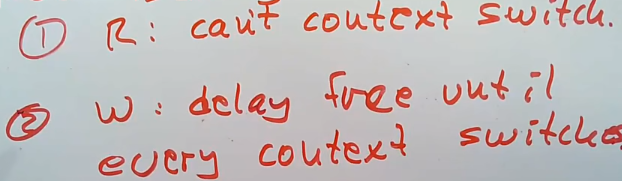 ① R: can't context switch.
② W: delay free until
every context switches